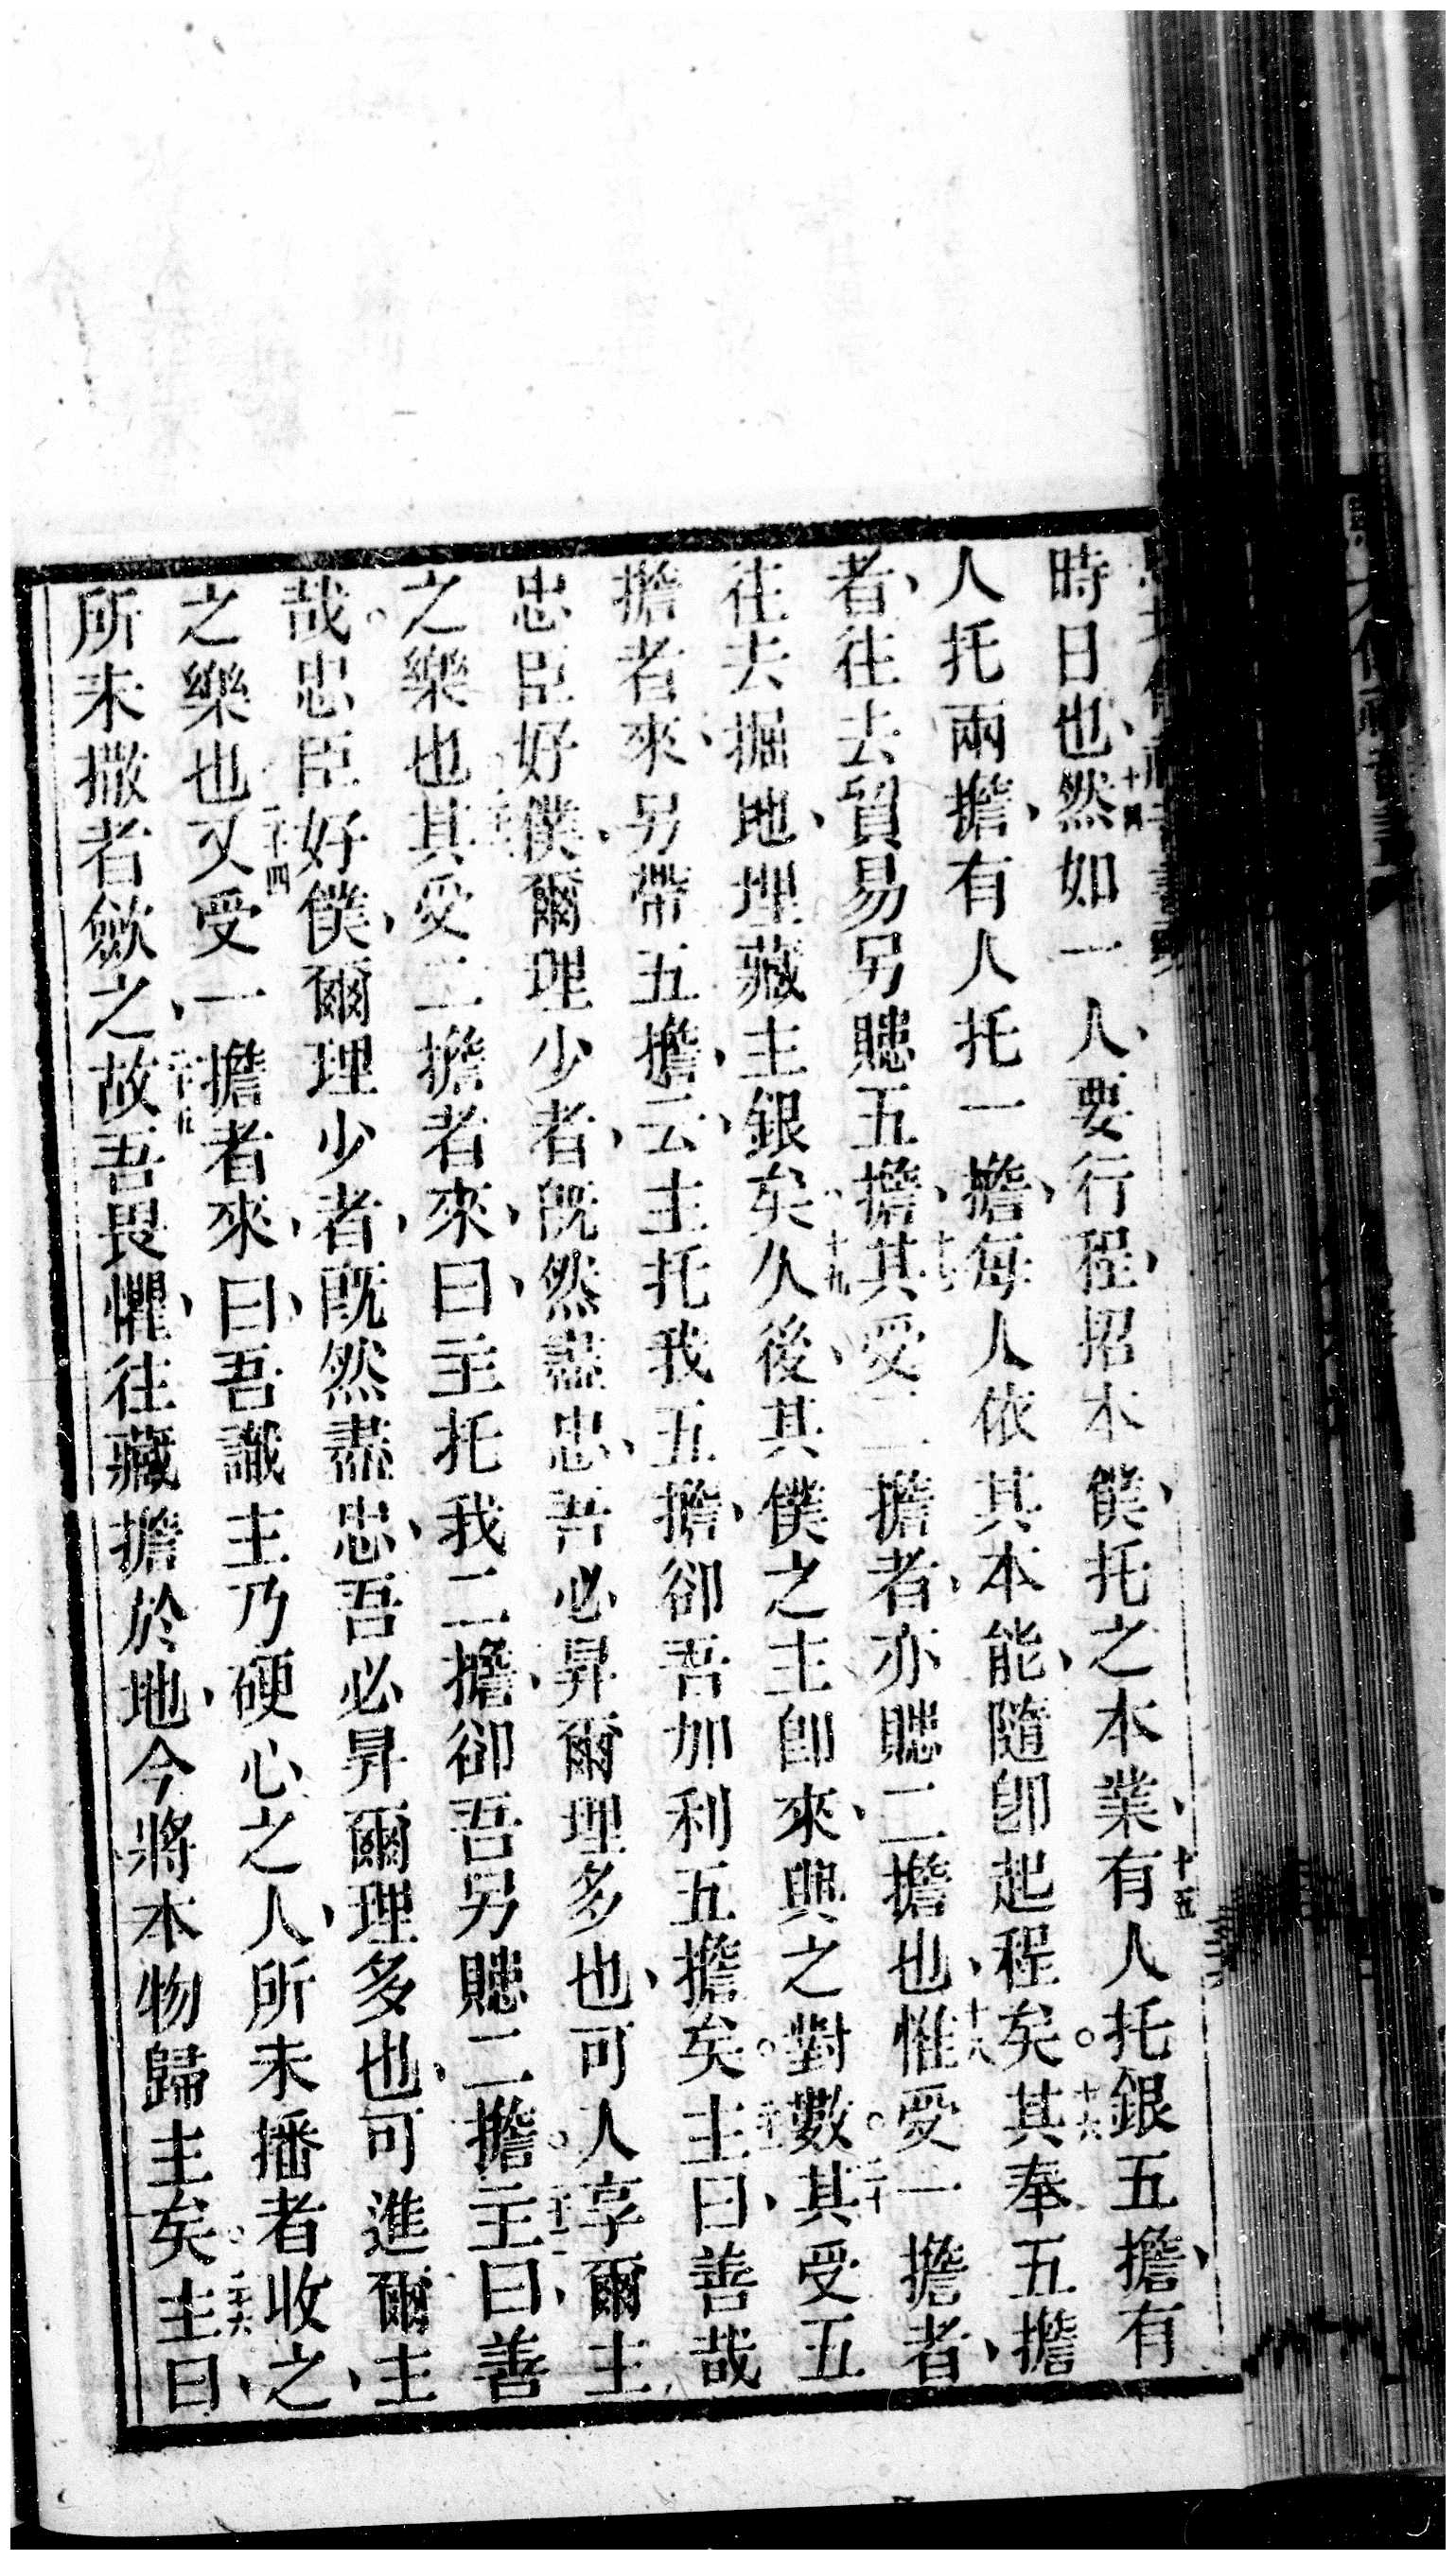 時日也、十四然如一人、要行程、招本僕、托之本業、十五有人托銀五擔、有
人托兩擔、有人托一擔、每人依其本能、隨卽起程矣。十六其奉五擔
者、往去貿易另賺五擔、十七其受二擔者、亦賺二擔也、十八惟受一擔者、
往去掘地、埋藏主銀矣、十九久後、其僕之主卽來、與之對數。二十其受五
擔者來、另帶五擔、云、主托我五擔、卻吾加利五擔矣。主曰、善哉
忠臣好僕、爾理少者、旣然盡忠、吾必昇爾理多也、可入享爾主
之樂也其受二擔者來、曰、主托我二擔、卻吾另賺二擔。主曰、善
哉。忠臣好僕、爾理少者、旣然盡忠、吾必昇爾理多也、可進爾主
之樂也二十四又受一擔者來、曰、吾識主乃硬心之人、所未播者收之、
所未撒者斂之、二十五故吾畏懼、往藏擔於地、今將本物歸主矣。二十六主曰、